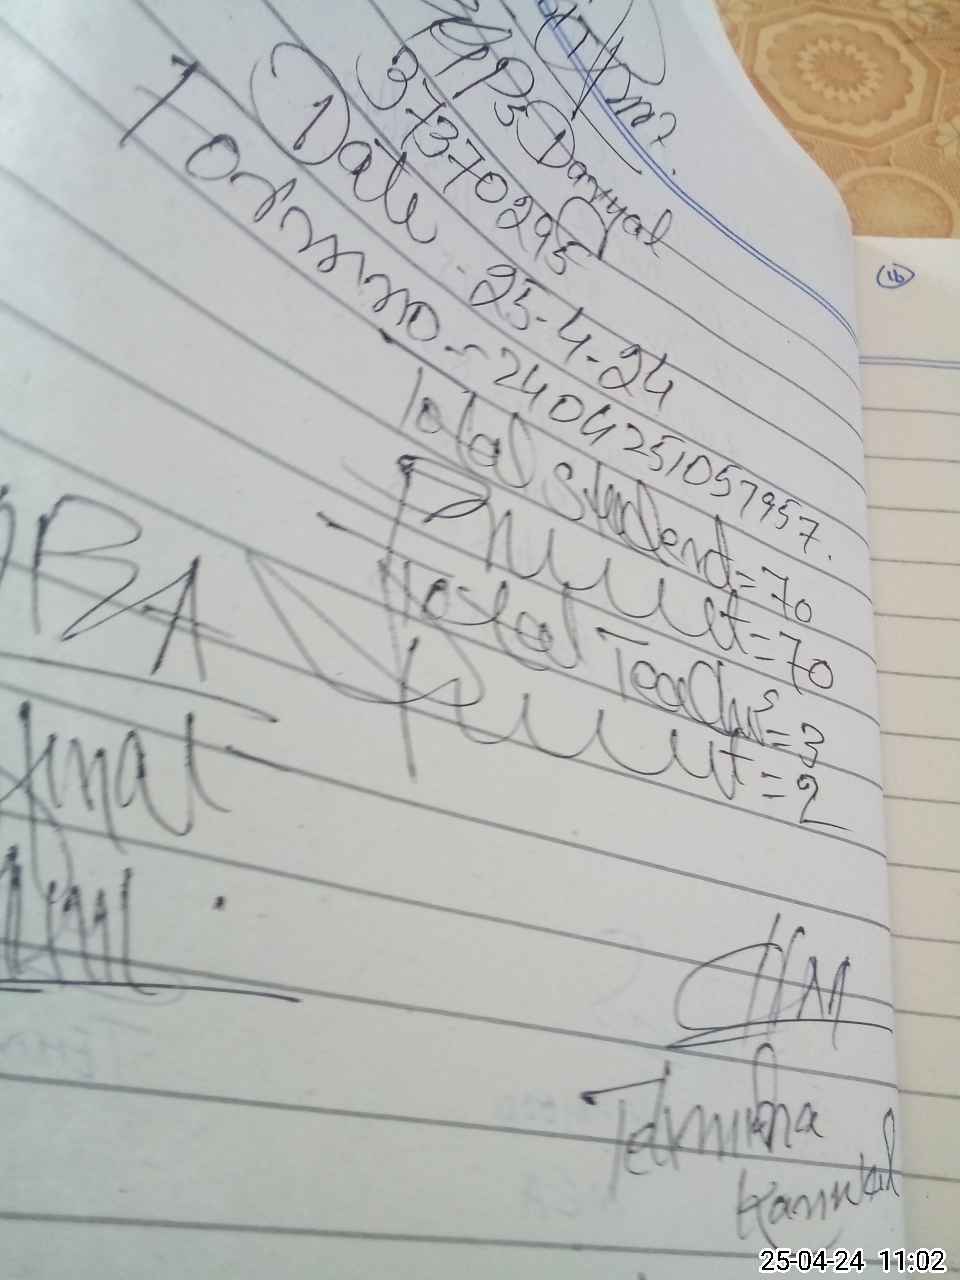 GPS Daryal
37370295
Date - 25-4-24
Form no - 2404251057957.
Total student = 70
Present = 70
Total Teachers = 3
Present = 2
BA
Final
HM
Tehmina
Kanwal
16
25-04-24 11:02